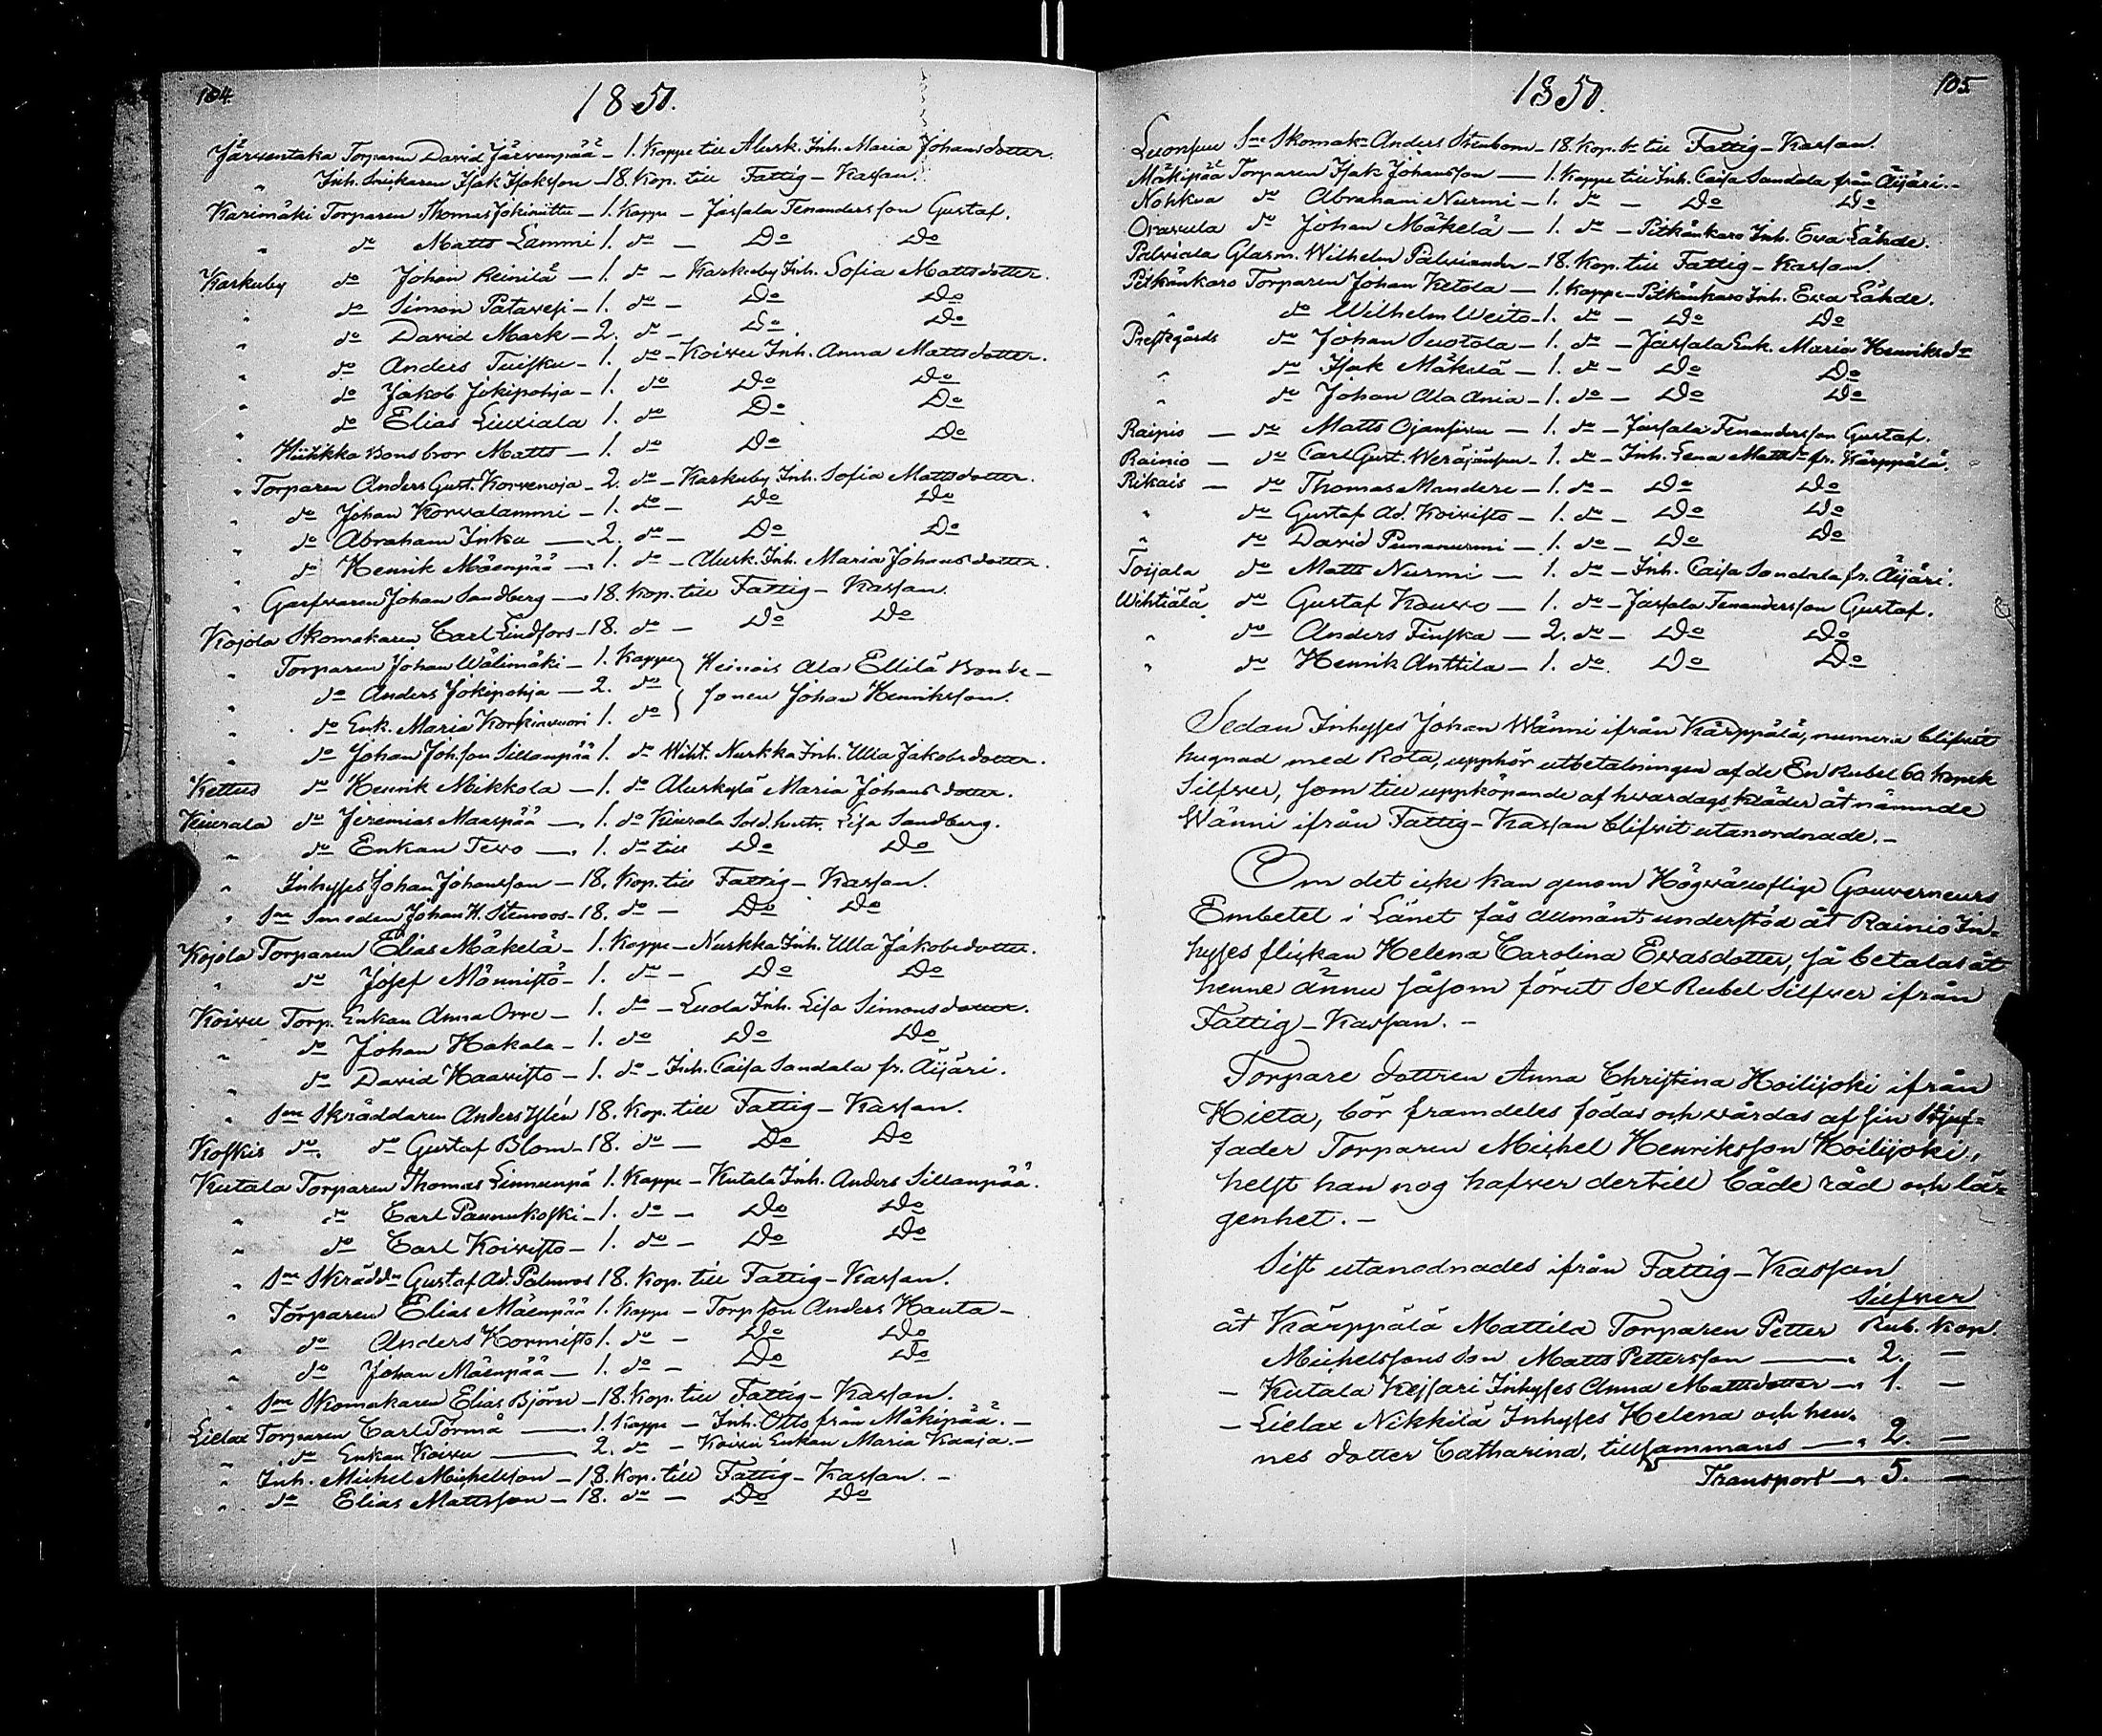 104.
1850.
Järventaka Torparen David Järvenpää – 1. Kappe till Alusk. Inh. Maria Johansdotter.
" Inh. Snickaren Isak Isaksson – 18. Kop. till Fattig-Kassan.
Karimäki Torparen Thomas Jokiniittu – 1. Kappe – Jassala Tenandersson Gustaf.
" do Matts Lammi 1. do – Do Do
Karkuby do Johan Reinilä – 1. do – Karkuby Inh. Sofia Mattsdotter.
" do Simon Patavesi – 1. do – Do Do
" do David Mark – 2. do – Do Do
" do Anders Tuisku – 1. do – Koivu Inh. Anna Mattsdotter.
" do Jakob Jokipohja – 1. do Do Do
" do Elias Liuxiala 1. do Do Do
" Hiukka Bons bror Matts – 1. do Do Do
" Torparen Anders Gust. Korvenoja – 2. do – Karkuby Inh. Sofia Mattsdotter.
" do Johan Korvalammi – 1. do – Do Do
" do Abraham Inka – 2. do – Do Do
" do Henrik Mäenpää – 1. do – Alusk. Inh. Maria Johansdotter.
" Garfvaren Johan Sandberg – 18. Kop. till Fattig-Kassan.
Kojola Skomakaren Carl Lindfors – 18. do – Do Do
" Torparen Johan Wälimäki – 1. Kappe Heinois Ala Ellilä Bonde-
" do Anders Jokipohja – 2. do sonen Johan Henriksson.
" do Enk. Maria Korkiavuori 1. do
" do Johan Joh.son Sillanpää 1. do Wiht. Nurkka Inh. Ulla Jakobsdotter.
Kettus do Henrik Mikkola – 1. do Aluskylä Maria Johansdotter.
Kiurala do Jeremias Maaspää – 1. do Kiurala Sold. hustr. Lisa Sandberg.
" do Enkan Tevo – 1. do till Do Do
" Inhyses Johan Johansson – 18. Kop. till Fattig-Kassan.
" Sne Smeden Johan H. Stenroos – 18. do – Do Do
Kojola Torparen Elias Mäkelä – 1. Kappe – Nurkka Inh. Ulla Jakobsdotter.
" do Josef Männistö – 1. do – Do Do
Koivu Torp. Enkan Anna Orre – 1. do – Luoda Inh. Lisa Simonsdotter.
" do Johan Hakala – 1. do Do Do
" do David Haavisto – 1. do – Inh. Caisa Sandala fr. Äijäri.
" Sne Skräddaren Anders Hlén 18. Kop. till Fattig-Kassan.
Koskis do. do Gustaf Blom – 18. do – Do Do
Kutala Torparen Thomas Linnunpä 1. Kappe – Kutala Inh. Anders Sillanpää.
" do Carl Pannukoski – 1. do – Do Do
" do Carl Koivisto – 1. do – Do Do
" Sne Skrädd. Gustaf Ad. Palmros 18. Kop. till Fattig-Kassan.
" Torparen Elias Mäenpää 1. Kappe – Torp son Anders Hauta –
" do Anders Kormisto 1. do – Do Do
" do Johan Mäenpää – 1. do – Do Do
" Sne Skomakaren Elias Björn – 18. Kop. till Fattig-Kassan.
Lielax Torparen Carl Törmä – 1. Kappe – Inh. Otto från Mäkipää. –
" do Enkan Koivu – 2. do – Koivu Enkan Maria Kaaja. –
" Inh. Michel Michelsson – 18. Kop. till Fattig-Kassan. –
" do Elias Mattsson – 18. do – Do Do
1850.
105.
Luonsuu Sne Skomak. Anders Stenbom – 18. Kop. Sr till Fattig-Kassan.
Mäkipää Torparen Isak Johansson – 1. Kappe till Inh. Caisa Sandala från Äijäri. –
Nohkua do Abraham Nurmi – 1. do – Do Do
Oravula do Johan Mäkelä – 1. do – Pitkänkaro Inh. Eva Lähde.
Palviala Glasm. Wilhelm Palviander – 18. Kop. till Fattig-Kassan.
Pitkänkaro Torparen Johan Ketola – 1. Kappe – Pitkänkaro Inh. Eva Lähde.
" do Wilhelm Weito – 1. do – Do Do
Prestgårds do Johan Suotola – 1. do – Jassala Enk. Maria Henriksdr
" do Isak Mäkelä – 1. do – Do Do
" do Johan Ala Ania – 1. do – Do Do
Raipio – do Matts Ojansuu – 1. do – Jassala Tenandersson Gustaf.
Rainio – do Carl Gust. Weräjänsuu – 1. do – Inh. Lena Mattsdr fr. Kärppälä.
Rikais – do Thomas Mandere – 1. do – Do Do
" do Gustaf Ad. Koivisto – 1. do – Do Do
" do David Punanurmi – 1. do – Do Do
Toijala do Matts Nurmi – 1. do – Inh. Caisa Sandala fr. Äijäri.
Wihtiälä do Gustaf Kouvo – 1. do – Jassala Tenandersson Gustaf.
" do Anders Finska – 2. do – Do Do
" do Henrik Anttila – 1. do. Do Do
Sedan Inhyses Johan Wänni ifrån Kärppälä, numera blifvit
hugnad med Rota, upphör utbetalningen af de En Rubel 60 kopek
Silfver, som till uppköpande af hvardags kläder åt nämnde
Wänni ifrån Fattig-Kassan blifvit utanordnade. –
Om det icke kan genom Högvälloflige Gouverneurs
Embetet i Länet fås allmänt understöd åt Rainio In-
hyses flickan Helena Carolina Evasdotter, så betalas åt
henne ännu såsom förut Sex Rubel Silfver ifrån
Fattig-Kassan. –
Torpare dottren Anna Christina Koilijoki ifrån
Hieta, bör framdeles födas och vårdas af sin Stjuf-
fader Torparen Michel Henriksson Koilijoki,
helst han nog hafver dertill både råd och lä-
genhet. –
Sist utanodnades ifrån Fattig-Kassan
Silfver
åt Kärppälä Mattila Torparen Petter Rub. Kop.
Michelssons Son Matts Pettersson – 2. –
– Kutala Kessari Inhyses Anna Mattsdotter – 1. –
– Lielax Nikkilä Inhyses Helena och hen-
nes dotter Catharina, tillsammans – 2. –
Transport – 5. –